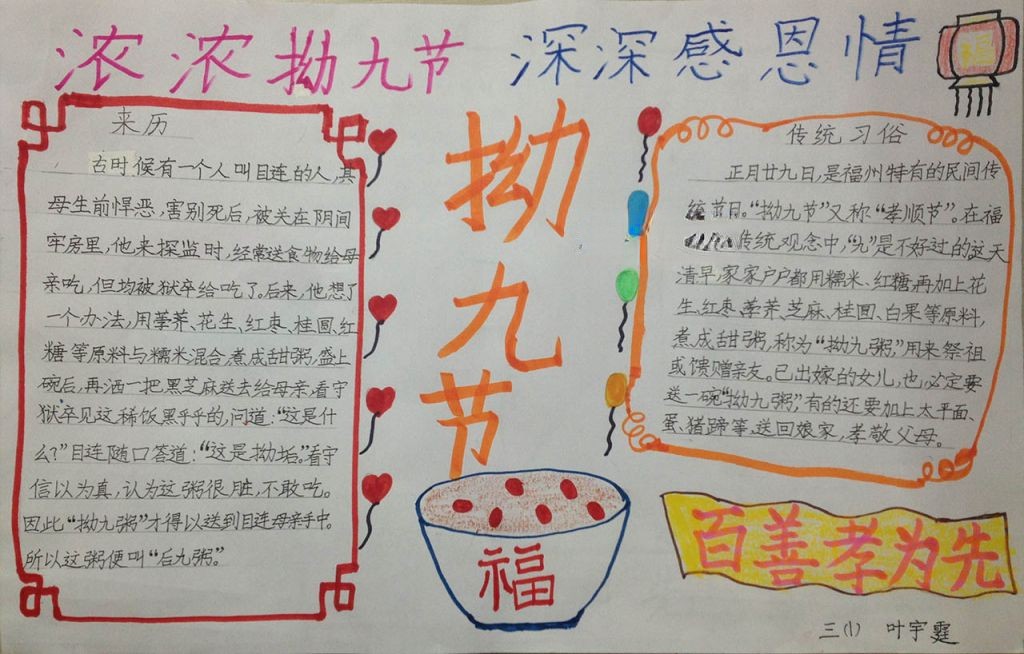 浓浓拗九节 深深感恩情
福
来历
古时候有一个人叫目连的人,其
母生前悍恶,害别死后,被关在阴间
牢房里,他来探监时,经常送食物给母
亲吃,但均被狱卒给吃了。后来,他想了
一个办法,用荸荠、花生、红枣、桂圆、红
糖等原料与糯米混合,煮成甜粥,盛上
碗后,再洒一把黑芝麻送去给母亲,看守
狱卒见这稀饭黑乎乎的,问道:“这是什
么?”目连随口答道:“这是拗垢。”看守
信以为真,认为这粥很脏,不敢吃。
因此“拗九粥”才得以送到目连母亲手中。
所以这粥便叫“后九粥”。
拗
九
节
福
传统习俗
正月廿九日,是福州特有的民间传
统节日。“拗九节”又称“孝顺节”。在福
传统观念中,“九”是不好过的这天
清早,家家户户都用糯米、红糖,再加上花
生、红枣、荸荠、芝麻、桂圆、白果等原料,
煮成甜粥,称为“拗九粥”,用来祭祖
或馈赠亲友。已出嫁的女儿,也必定要
送一碗“拗九粥”,有的还要加上太平面、
蛋、猪蹄等,送回娘家,孝敬父母。
百善孝为先
三(1) 叶宇霆